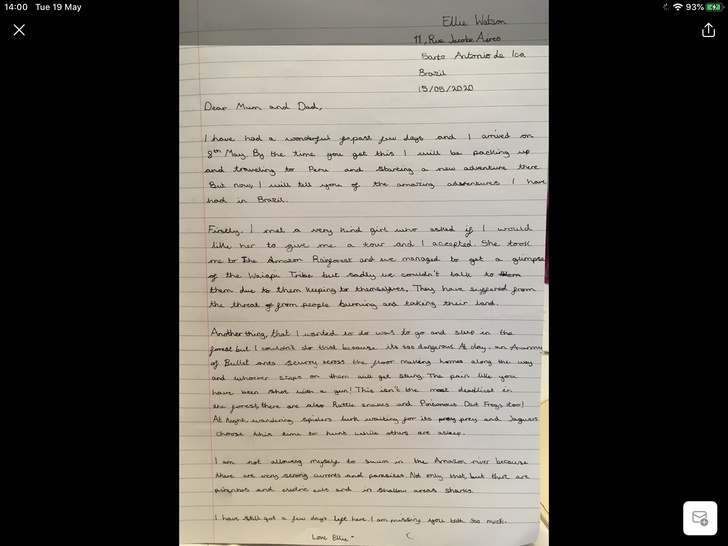 14:00 Tue 19 May
93%
Ellie Watson
11, Rue Jacobe Aereo
Santo Antonio de Ica
Brazil
15/05/2020
Dear Mum and Dad,
I have had a wonderful past few days and I arrived on
8th May. By the time you get this I will be packing up
and traveling to Peru and starting a new adventure there.
But now, I will tell you of the amazing adventures I have
had in Brazil.
Firstly, I met a very kind girl who asked if I would
like her to give me a tour and I accepted. She took
me to The Amazon Rainforest and we managed to get a glimpse
of the Waiapi Tribe but sadly we couldn't talk to them
them due to them keeping to themselves. They have suffered from
the threat of from people burning and taking their land.
Another thing, that I wanted to do was to go and sleep in the
forest but I couldn't do that because its too dangerous. At day, an army
of Bullet ants scurry across the floor making homes along the way
and whoever steps on them will get stung. The pain like you
have been shot with a gun! This isn't the most deadliest in
the forest, there are also Rattle snakes and Poisonous Dart Frogs too!
At Night, wandering spiders lurk waiting for its prey and Jaguars
choose this time to hunt while others are asleep.
I am not allowing myself to swim in the Amazon river because
there are very strong currents and parasites. Not only that, but there are
piranhas and electric eels and in shallow areas sharks.
I have still got a few days left here. I am missing you both so much.
Love Ellie